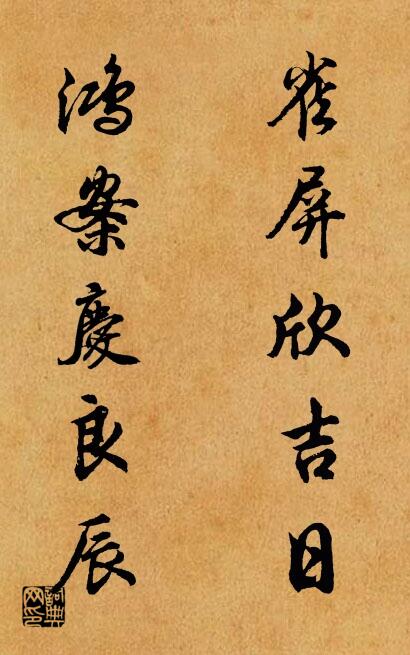 雀屏欣吉日
鴻案慶良辰